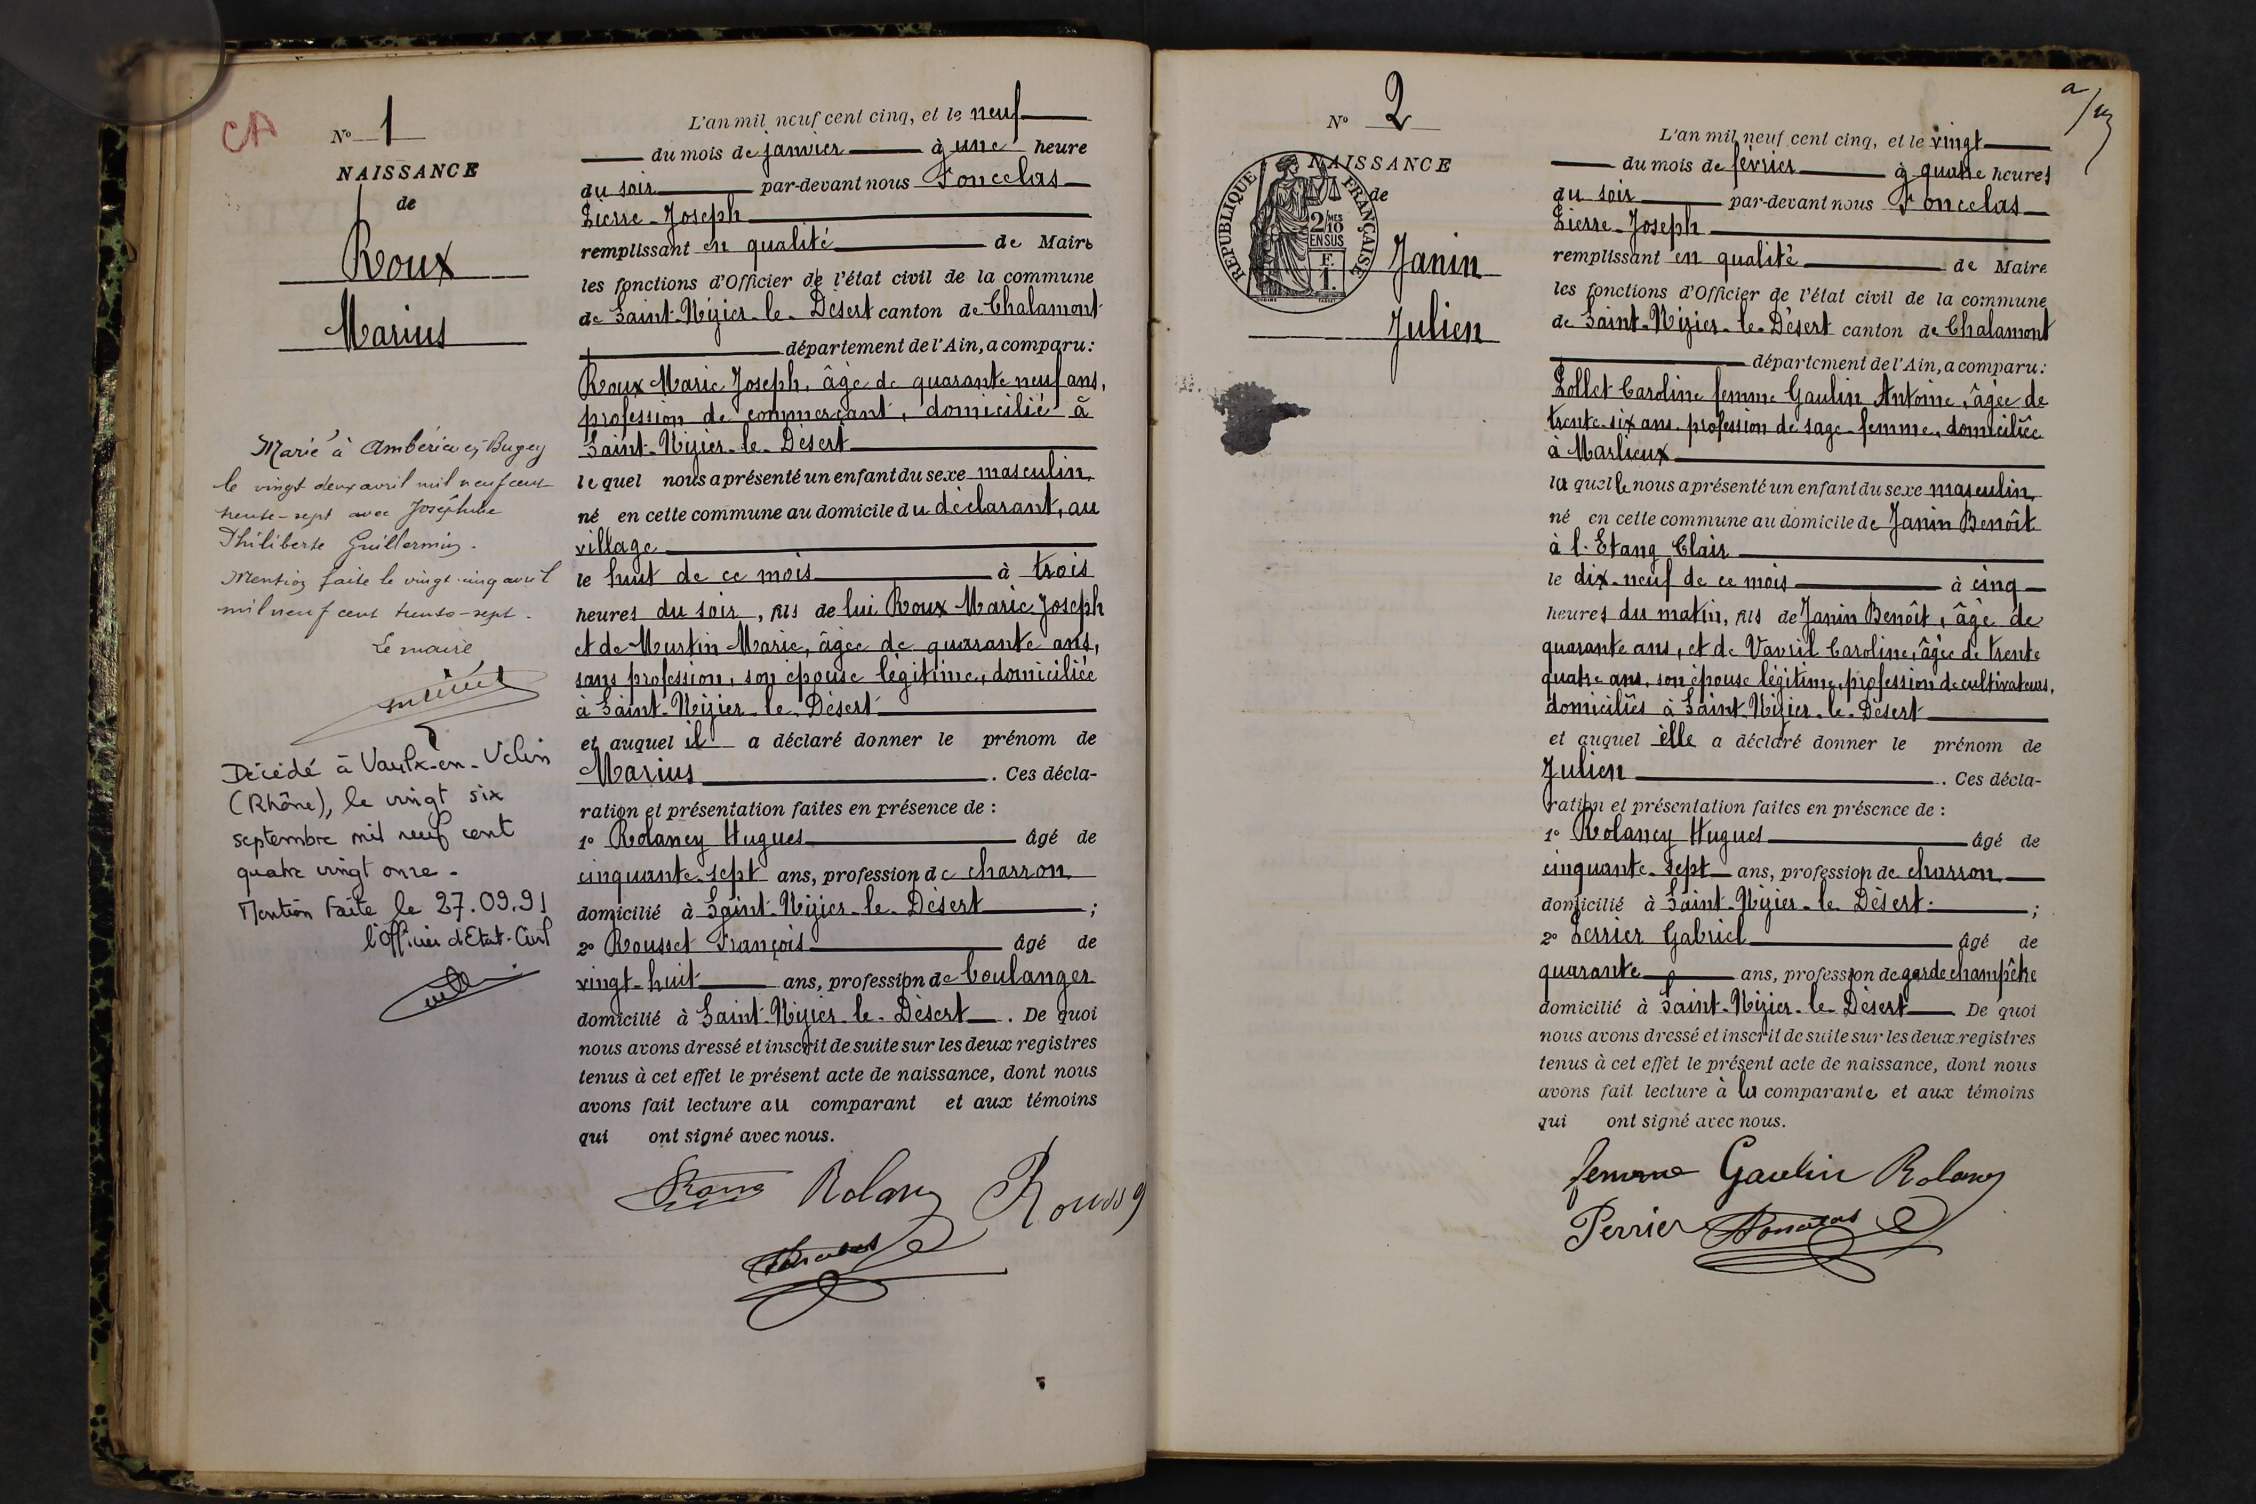 CA
N° 1
NAISSANCE
de
Roux
Marius
Marié à Ambérieu en Bugey
le vingt deux avril mil neuf cent
trente-sept avec Joséphine
Philiberte Guillermin.
Mention faite le vingt-cinq avril
mil neuf cent trente-sept.
Le maire
Décédé à Vaulx-en-Velin
(Rhône), le vingt six
septembre mil neuf cent
quatre vingt onze.
Mention faite le 27.09.91
l'Officier d'Etat-Civil
L'an mil neuf cent cinq, et le neuf
du mois de janvier à une heure
du soir par-devant nous Foncelas
Pierre-Joseph
remplissant en qualité de Maire
les fonctions d'Officier de l'état civil de la commune
de Saint-Nizier-le-Désert canton de Chalamont
département de l'Ain, a comparu:
Roux Marie Joseph, âgé de quarante neuf ans,
profession de commerçant, domicilié à
Saint-Nizier-le-Désert
lequel nous a présenté un enfant du sexe masculin,
né en cette commune au domicile du déclarant, au
village
le huit de ce mois à trois
heures du soir, fils de lui Roux Marie Joseph
et de Murtin Marie, âgée de quarante ans,
sans profession, son épouse légitime, domiciliée
à Saint-Nizier-le-Désert
et auquel il a déclaré donner le prénom de
Marius. Ces décla-
ration et présentation faites en présence de :
1° Rolancy Hugues âgé de
cinquante-sept ans, profession de charron
domicilié à Saint-Nizier-le-Désert ;
2° Rousset François âgé de
vingt-huit ans, profession de boulanger
domicilié à Saint-Nizier-le-Désert. De quoi
nous avons dressé et inscrit de suite sur les deux registres
tenus à cet effet le présent acte de naissance, dont nous
avons fait lecture au comparant et aux témoins
qui ont signé avec nous.
Rolancy
N° 2
NAISSANCE
de
REPUBLIQUE FRANÇAISE
2/MES
10
EN SUS
F.
1.
Janin
Julien
L'an mil neuf cent cinq, et le vingt
du mois de février à quatre heures
du soir par-devant nous Foncelas
Pierre-Joseph
remplissant en qualité de Maire
les fonctions d'Officier de l'état civil de la commune
de Saint-Nizier-le-Désert canton de Chalamont
département de l'Ain, a comparu:
Pollet Caroline femme Gaulin Antoine, âgée de
trente-six ans, profession de sage-femme, domiciliée
à Marlieux
laquelle nous a présenté un enfant du sexe masculin,
né en cette commune au domicile de Janin Benoît
à l'Etang Clair
le dix-neuf de ce mois à cinq
heures du matin, fils de Janin Benoît, âgé de
quarante ans, et de Vavril Caroline, âgée de trente
quatre ans, son épouse légitime, profession de cultivateurs,
domiciliés à Saint-Nizier-le-Désert
et auquel elle a déclaré donner le prénom de
Julien. Ces décla-
ration et présentation faites en présence de :
1° Rolancy Hugues âgé de
cinquante-sept ans, profession de charron
domicilié à Saint-Nizier-le-Désert ;
2° Perrier Gabriel âgé de
quarante ans, profession de garde champêtre
domicilié à Saint-Nizier-le-Désert De quoi
nous avons dressé et inscrit de suite sur les deux registres
tenus à cet effet le présent acte de naissance, dont nous
avons fait lecture à la comparante et aux témoins
qui ont signé avec nous.
femme Gaulin Rolancy
Perrier Foncelas